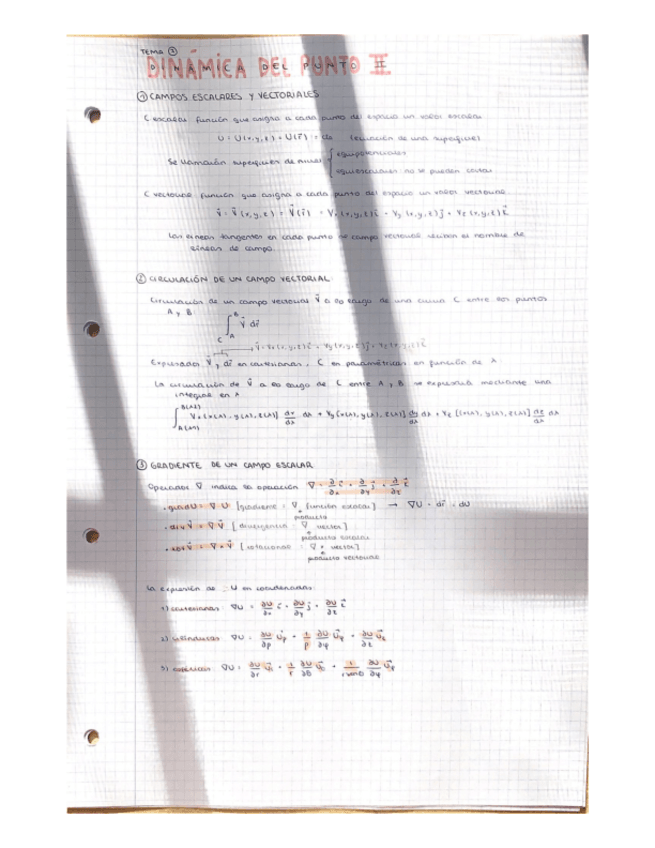 TEMA ③
DINÁMICA DEL PUNTO II
① CAMPOS ESCALARES Y VECTORIALES
C escalar función que asigna a cada punto del espacio un valor escalar
U = U(x,y,z) = U(r⃗) = cte (ecuación de una superficie)
Se llamarán superficies de nivel { equipotenciales
equiescalares: no se pueden cortar
C vectorial función que asigna a cada punto del espacio un valor vectorial
v⃗ = v⃗(x,y,z) = V⃗(r⃗) = Vx(x,y,z)i⃗ + Vy(x,y,z)j⃗ + Vz(x,y,z)k⃗
Las líneas tangentes en cada punto al campo vectorial reciben el nombre de
líneas de campo.
② CIRCULACIÓN DE UN CAMPO VECTORIAL
Circulación de un campo vectorial V⃗ a lo largo de una curva C entre dos puntos
A y B:
∫ B A C V⃗ dr⃗
V⃗ = Vx(x,y,z)i⃗ + Vy(x,y,z)j⃗ + Vz(x,y,z)k⃗
Expresados V⃗ y dr⃗ en cartesianas, C en paramétricas en función de λ
La circulación de V⃗ a lo largo de C entre A y B se expresará mediante una
integral en λ
∫ B(λ2) A(λ1) Vx[x(λ), y(λ), z(λ)] dx/dλ dλ + Vy[x(λ), y(λ), z(λ)] dy/dλ dλ + Vz[x(λ), y(λ), z(λ)] dz/dλ dλ
③ GRADIENTE DE UN CAMPO ESCALAR
Operador ∇ indica la operación ∇ = ∂/∂x i⃗ + ∂/∂y j⃗ + ∂/∂z k⃗
· grad U = ∇ U [gradiente: ∇ función escalar] → ∇U · dr⃗ = dU
producto
· div V⃗ = ∇ · V⃗ [divergencia: ∇ · vector]
producto escalar
· rot V⃗ = ∇ × V⃗ [rotacional: ∇ × vector]
producto vectorial
La expresión de ∇U en coordenadas:
1) cartesianas: ∇U = ∂U/∂x i⃗ + ∂U/∂y j⃗ + ∂U/∂z k⃗
2) cilíndricas: ∇U = ∂U/∂ρ u⃗ρ + 1/ρ ∂U/∂φ u⃗φ + ∂U/∂z u⃗z
3) esféricas: ∇U = ∂U/∂r u⃗r + 1/r ∂U/∂θ u⃗θ + 1/r senθ ∂U/∂φ u⃗φ